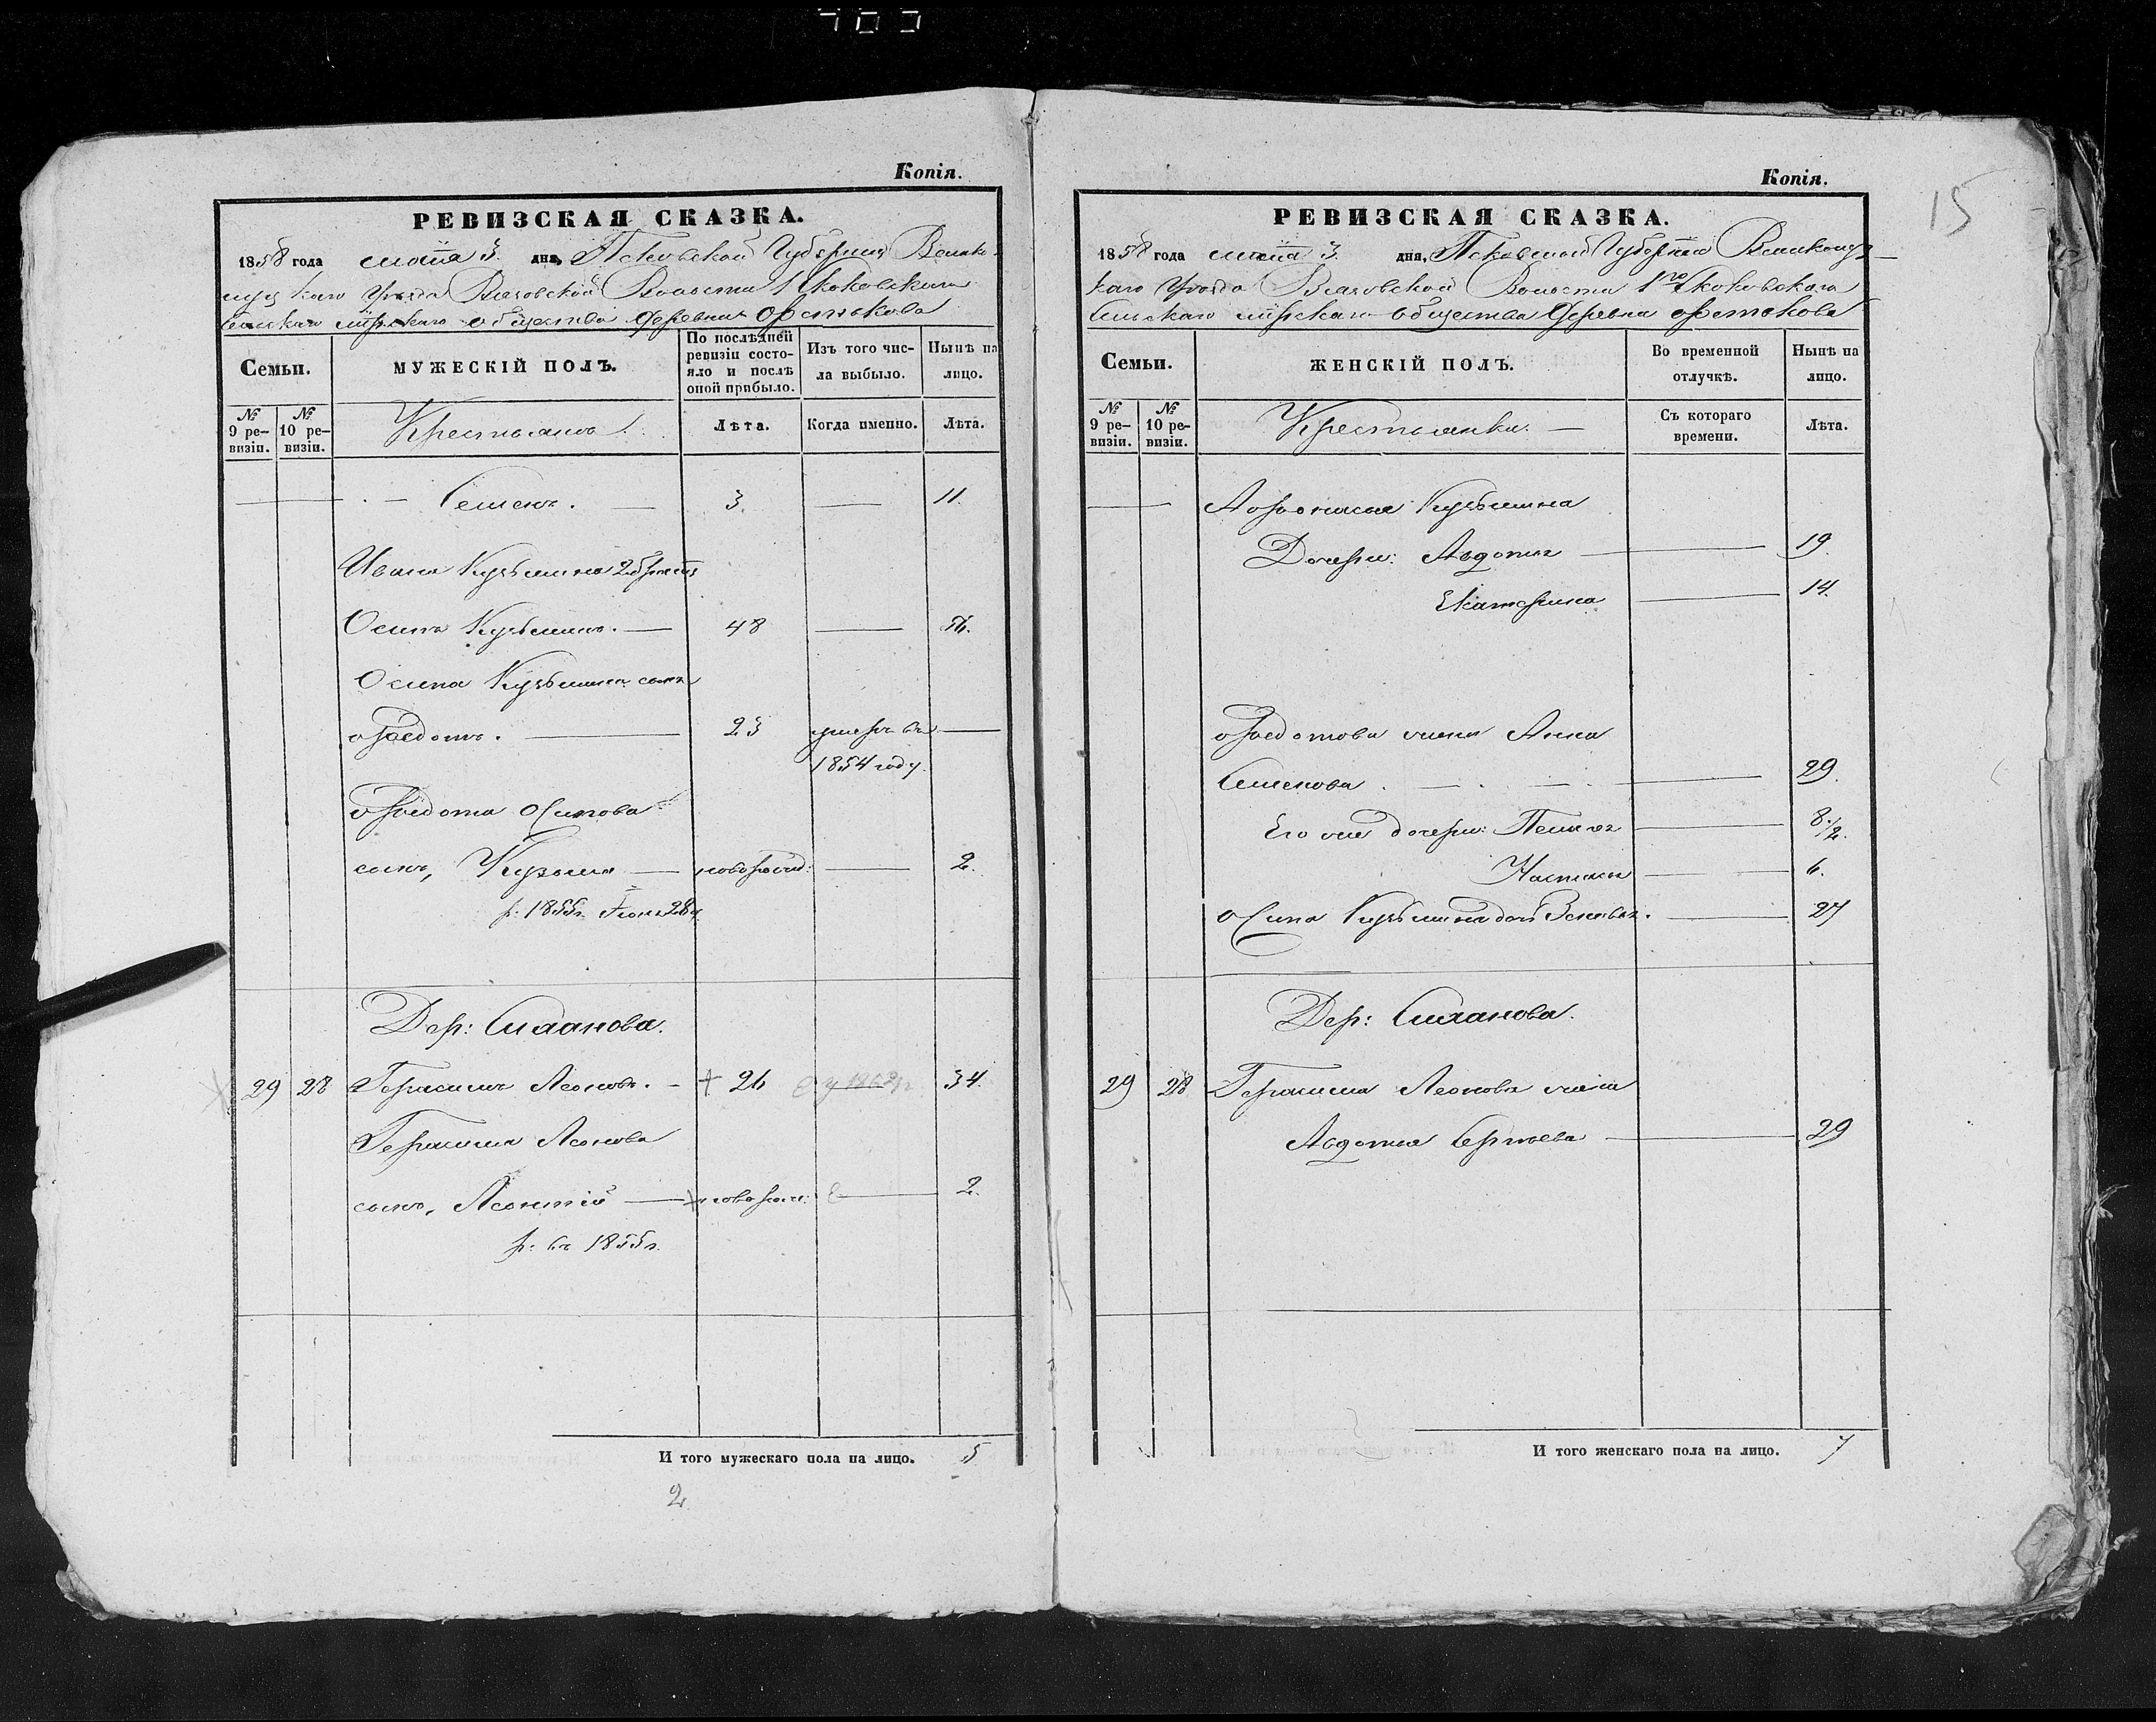 Копія.
РЕВИЗСКАЯ СКАЗКА.
1858 года маія 3. дня, Псковской Губерніи Велико-
луцкаго Уѣзда Волости 1 Скоковскаго
Сельскаго мірскаго общества Деревни
Семьи.
МУЖЕСКІЙ ПОЛЪ.
По послѣдней ревизіи состо-
яло и послѣ оной прибыло.
Изъ того чис-
ла выбыло.
Нынѣ на
лицо.
№ 9 ре-
визіи.
№ 10 ре-
визіи.
Крестьянъ.
Лѣта.
Когда именно.
Лѣта.
Семенъ. 3. 11.
Ивана Кузьмина 2 братъ
Осипъ Кузьминъ. 48
Осипа Кузьмина сынъ
Ѳедотъ. 23 умеръ въ
1854 году.
Ѳедота Осипова
сынъ, Кузьма новорожд: 2.
р: 1855г. 28
Дер: Симанова.
29 28 Герасимъ Леоновъ. 26 34.
Герасима Леонова
сынъ, Леонтій новорожд: 2.
р: въ 1855г.
И того мужескаго пола на лицо. 5
2
Копія.
15
РЕВИЗСКАЯ СКАЗКА.
1858 года маія 3. дня, Псковской Губерніи Великолуц-
каго Уѣзда Волости 1го Скоковскаго
Сельскаго мірскаго общества Деревня
Семьи.
ЖЕНСКІЙ ПОЛЪ.
Во временной
отлучкѣ.
Нынѣ на
лицо.
№ 9 ре-
визіи.
№ 10 ре-
визіи.
Крестьянки.
Съ котораго
времени.
Лѣта.
Аѳонасья Кузьмина
Дочери: Авдотья 19.
Екатерина 14.
Ѳедотова жена Анна
Семенова 29.
Его же дочери: Пелагея 8 1/2.
Настасья 6.
Осипа Кузьмина дочь Зеновья. 27
Дер: Симанова.
29 28 Герасима Леонова жена
Авдотья Сергѣева 29
И того женскаго пола на лицо. 7